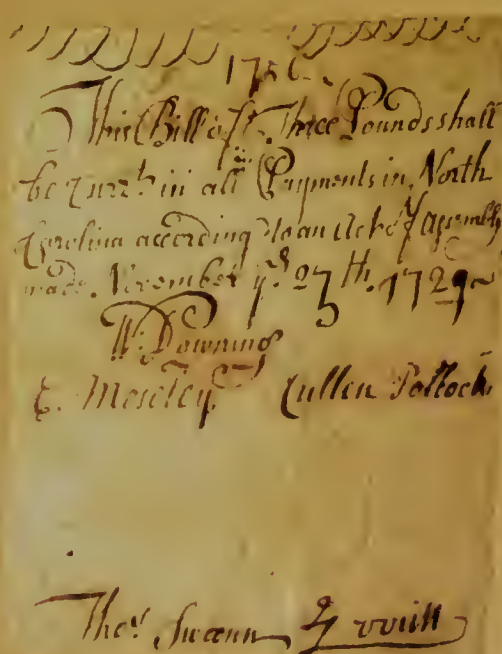 This Bill of Three Pounds shall
be Curr.t in all Payments in North
Carolina according to an Act of Assembly
made November ye 27th. 1729
W: Downing
E. Moseley. Cullen Pollock
Tho.s Swann